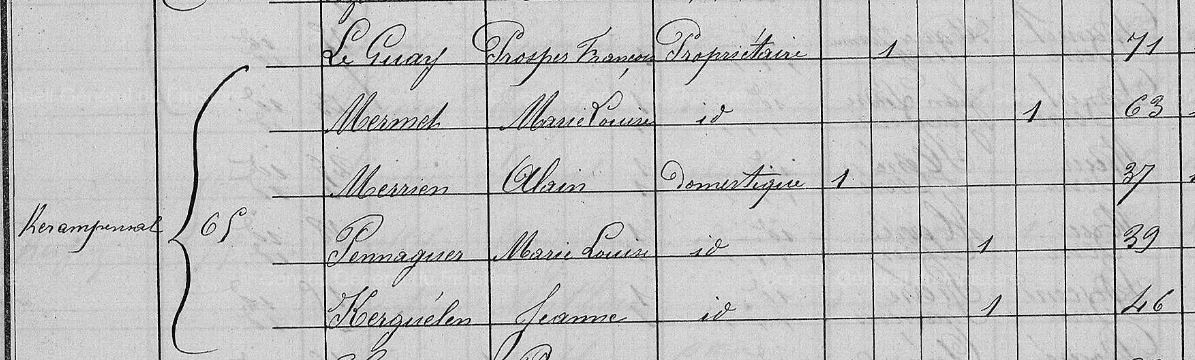 Le Guay Prosper François Propriétaire 1 71
Mermet Marie Louise id 1 63
Merrien Alain domestique 1 37
Kerampensal 65 Pennaguer Marie Louise id 1 39
Kerguélen Jeanne id 1 46